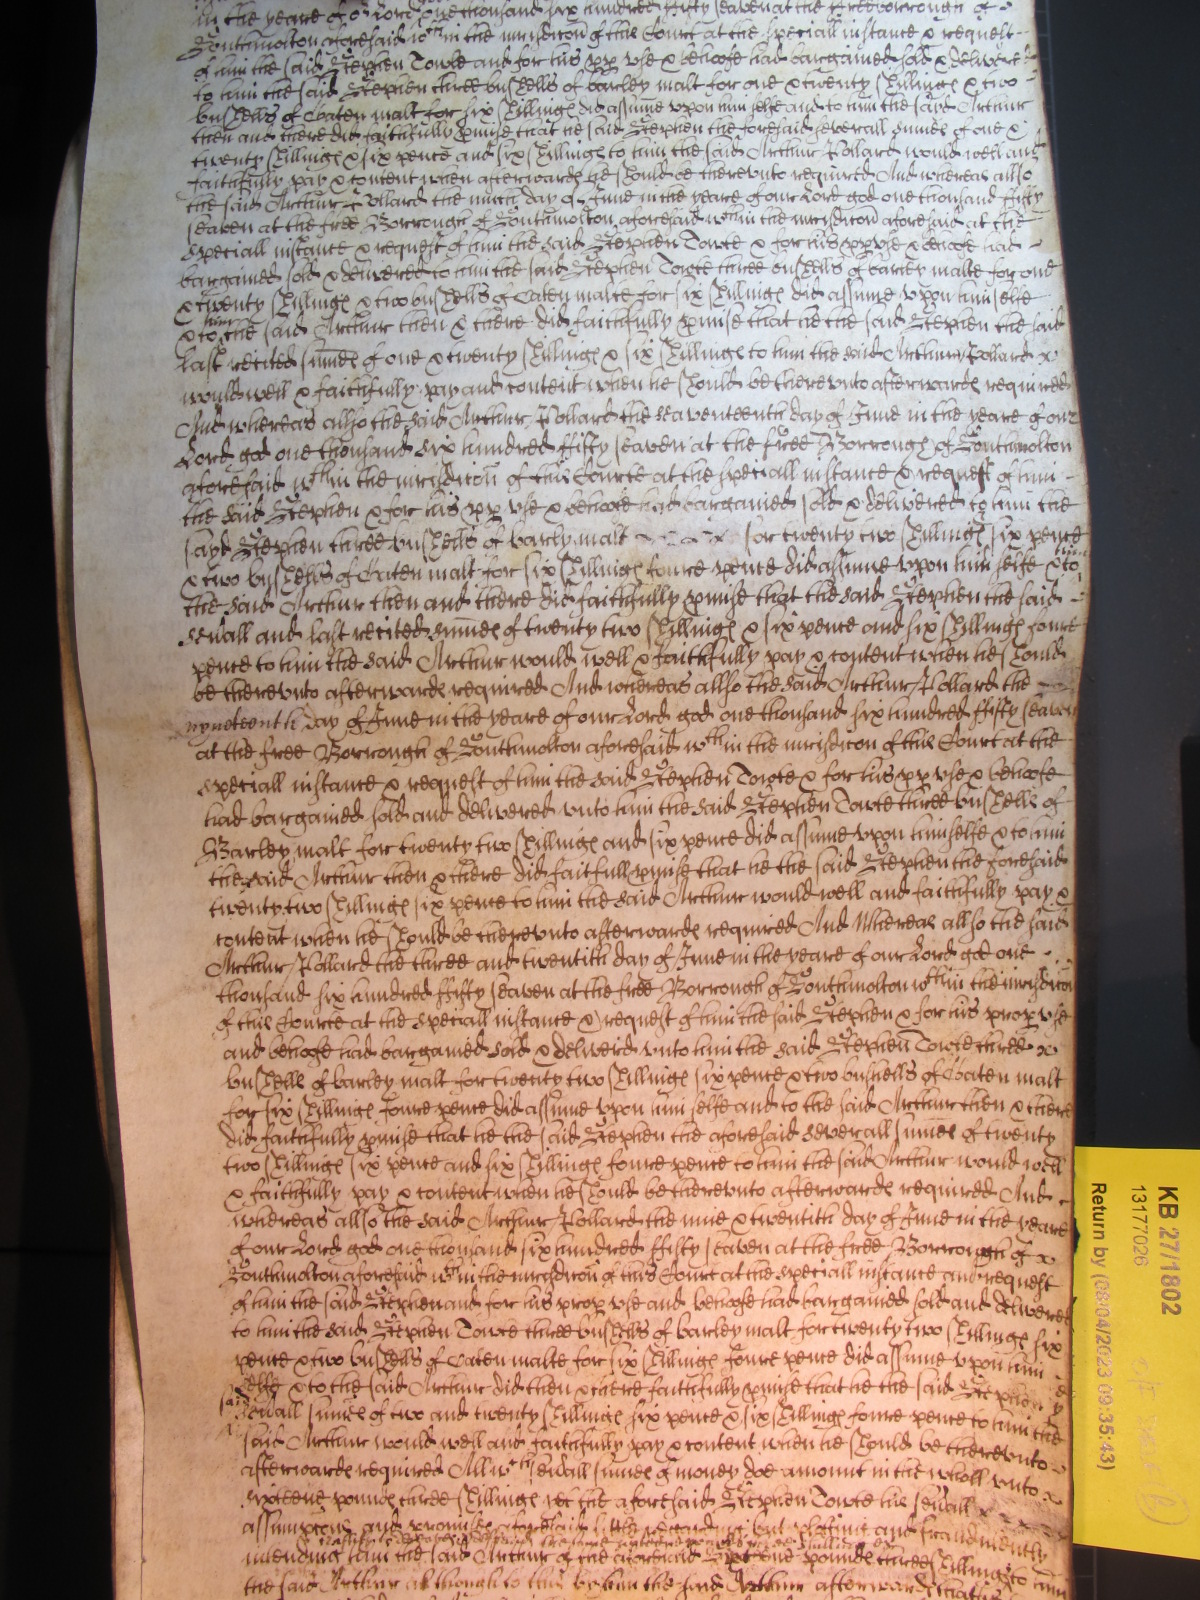 in the yeare of o^r Lord one thousand six hundred fifty seaven at the ffree Borrough of
Southmolton aforesaid w^th in the iurisdicon of this Court at the speciall instance & request
of him the said Stephen Towte and for his pp vse & behoofe had bargained sold & delivered
to him the said Stephen three bushells of barley malt for one & twenty shillings & two
bushells of Oaten malt for six shillings did assume vpon him selfe and to him the said Arthur
then and there did faithfully pmise that he said Stephen the foresaid severall sumes of one &
twenty shillings & six pence and six shillings to him the said Arthur Pollard would well and
faithfully pay & content when afterwards he should be therevnto required And whereas allso
the said Arthur Pollard the day of June in the yeare of our Lord god one thousand fifty
seaven at the free Borrough of Southmolton aforesaid w^th in the iurisdicon aforesaid at the
speciall instance & request of him the said Stephen Towte & for his pp vse & behoofe had
bargained sold & delivered to him the said Stephen Towte three bushells of barley malte for one
& twenty shillings & two bushells of Oaten malte for six shillings did assume vpon him selfe
& to him the said Arthur then & there did faithfully pmise that he the said Stephen the said
last recited sumes of one & twenty shillings & six shillings to him the said Arthur Pollard
would well & faithfully pay and content when he should be therevnto afterwards required
And whereas allso the said Arthur Pollard the seaventeenth day of June in the yeare of our
Lord god one thousand six hundred ffifty seaven at the free Borrough of Southmolton
aforesaid w^th in the iurisdicon of this Courte at the speciall instance & request of him
the said Stephen & for his pp vse & behoofe had bargained sold & delivered to him the
sayd Stephen three bushells of barly malt for twenty two shillings six pence
& two bushells of Oaten malt for six shillings foure pence did assume vpon him selfe & to him
the said Arthur then and there did faithfully pmise that the said Stephen the said
sevall and last recited sumes of twenty two shillings & six pence and six shillings foure
pence to him the said Arthur would well & faithfully pay & content when he should
be therevnto afterwards required And whereas allso the said Arthur Pollard the
nynteenth day of June in the yeare of our Lord god one thousand six hundred ffifty seaven
at the free Borrough of Southmolton aforesaid w^th in the iurisdicon of this Court at the
speciall instance & request of him the said Stephen Towte & for his pp vse & behoofe
had bargained sold and delivered vnto him the said Stephen Towte three bushells of
Barley malt for twenty two shillings and six pence did assume vpon himselfe & to him
the said Arthur then & there did faitfull pmise that he the said Stephen the foresaid
twenty two shillings six pence to him the said Arthur would well and faithfully pay &
content when he should be therevnto afterwards required And Whereas allso the said
Arthur Pollard the three and twentith day of June in the yeare of our Lord god one
thousand six hundred ffifty seaven at the free Borrough of Southmolton w^th in the iurisdicon
of this Courte at the speciall instance & request of him the said Stephen & for his prop vse
and behoofe had bargained sold & deliverd vnto him the said Stephen Towte three
bushells of barley malt for twenty two shillings six pence & two bushells of Oaten malt
for six shillings foure pence did assume vpon him selfe and to the said Arthur then & there
did faithfully pmise that he the said Stephen the aforesaid severall sumes of twenty
two shillings six pence and six shillings foure pence to him the said Arthur would well
& faithfully pay & content when he should be therevnto afterwards required And
whereas allso the said Arthur Pollard the nine & twentith day of June in the yeare
of our Lord god one thousand six hundred ffifty seaven at the free Borrough of
Southmolton aforesaid w^th in the iurisdicon of this Court at the speciall instance and request
of him the said Stephen and for his prop vse and behoofe had bargained sold and delivered
to him the said Stephen Towte three bushells of barley malt for twenty two shillings six
pence & two bushells of Oaten malte for six shillings foure pence did assume vpon him
selfe & to the said Arthur did then & there faithfully pmise that he the said Stephen
said sevall sumes of two and twenty shillings six pence & six shillings foure pence to him the
said Arthur would well and faithfully pay & content when he should be therevnto
afterwards required All w^ch sevall sumes of money doe amount in the wholl vnto
sixteene pounds three shillings yet the aforesaid Stephen Towte his sevall
assumpcons and promises aforesaid little regarding but plotting and fraudulently
intending him the said Arthur of the aforesaid pounds three shillings to him
the said Arthur although to this by him the said Arthur afterwards
KB 27/1802
13177026
Return by (08/04/2023 09:35:43)